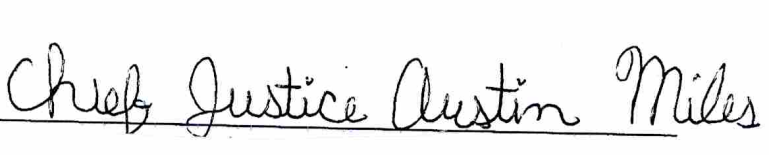 Chief Justice Austin Miles